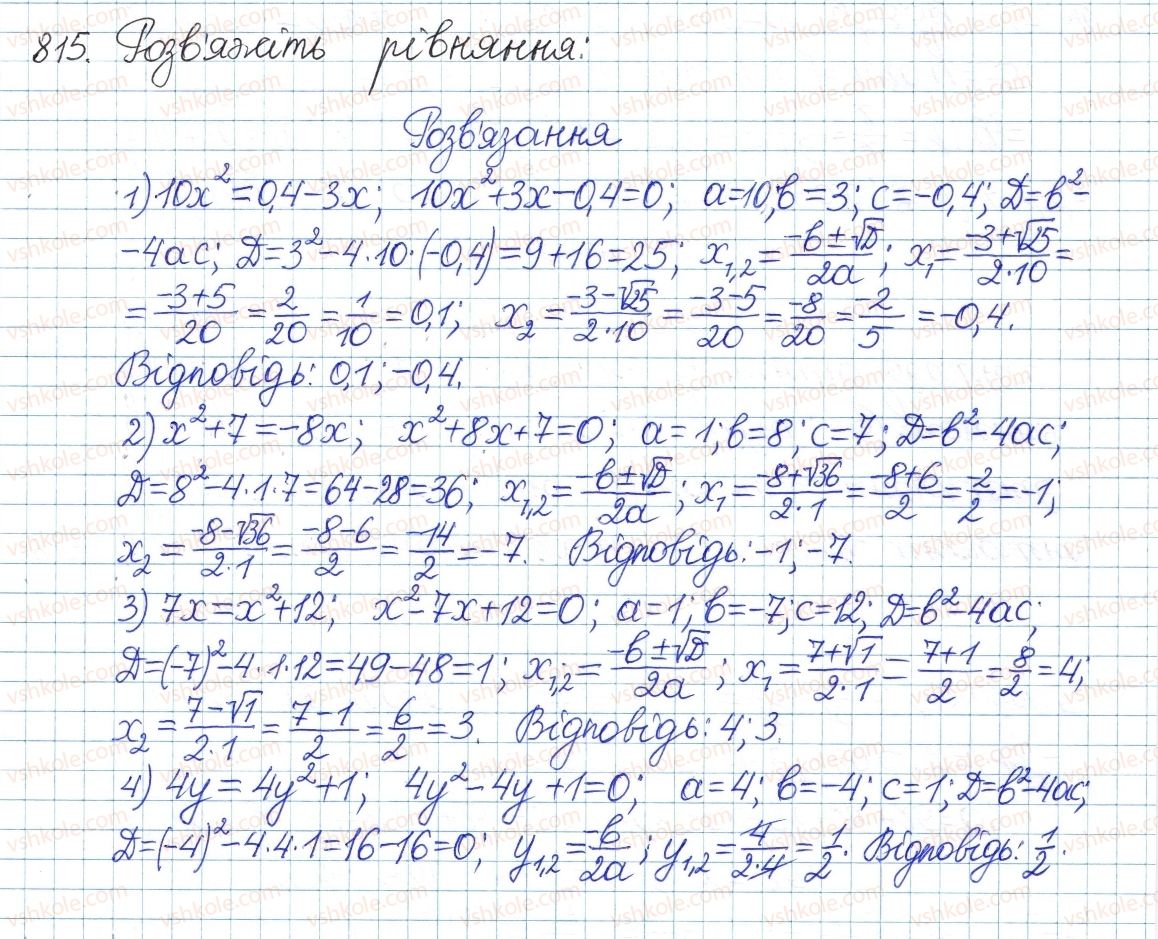 815. Розв'яжіть рівняння:
Розв'язання
1) 10x² = 0,4 - 3x; 10x² + 3x - 0,4 = 0; a = 10; b = 3; c = -0,4; Д = b² -
-4ac; Д = 3² - 4·10·(-0,4) = 9 + 16 = 25; x₁,₂ = (-b ± √D)/(2a); x₁ = (-3 + √25)/(2·10) =
= (-3 + 5)/20 = 2/20 = 1/10 = 0,1; x₂ = (-3 - √25)/(2·10) = (-3 - 5)/20 = -8/20 = -2/5 = -0,4.
Відповідь: 0,1; -0,4.
2) x² + 7 = -8x; x² + 8x + 7 = 0; a = 1; b = 8; c = 7; Д = b² - 4ac;
Д = 8² - 4·1·7 = 64 - 28 = 36; x₁,₂ = (-b ± √D)/(2a); x₁ = (-8 + √36)/(2·1) = (-8 + 6)/2 = -2/2 = -1;
x₂ = (-8 - √36)/(2·1) = (-8 - 6)/2 = -14/2 = -7. Відповідь: -1; -7.
3) 7x = x² + 12; x² - 7x + 12 = 0; a = 1; b = -7; c = 12; Д = b² - 4ac;
Д = (-7)² - 4·1·12 = 49 - 48 = 1; x₁,₂ = (-b ± √D)/(2a); x₁ = (7 + √1)/(2·1) = (7 + 1)/2 = 8/2 = 4;
x₂ = (7 - √1)/(2·1) = (7 - 1)/2 = 6/2 = 3. Відповідь: 4; 3.
4) 4y = 4y² + 1; 4y² - 4y + 1 = 0; a = 4; b = -4; c = 1; Д = b² - 4ac;
Д = (-4)² - 4·4·1 = 16 - 16 = 0; y₁,₂ = -b/(2a); y₁,₂ = 4/(2·4) = 1/2. Відповідь: 1/2.